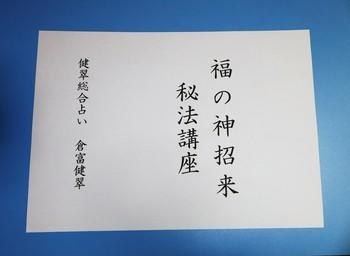 福の神招来
秘法講座
健翠総合占い　倉富健翠